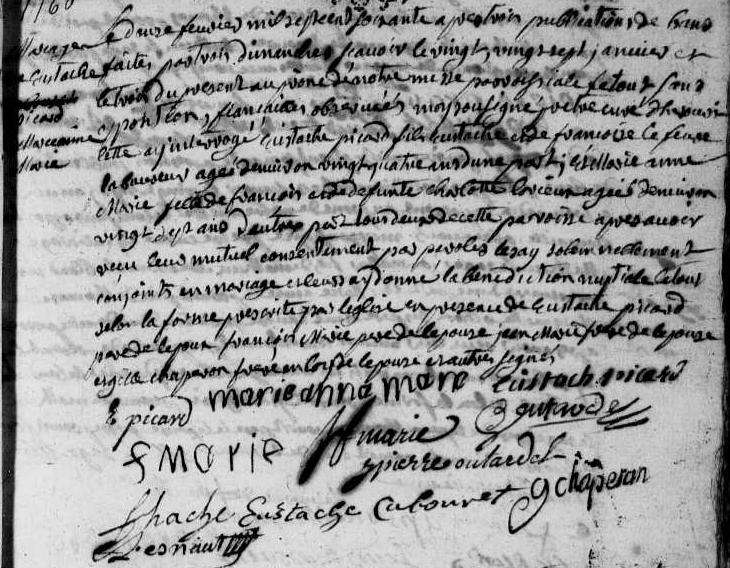 1760
Mariage Le douze fevrier mil sept cent soixante apres trois publications de bans
Eustache faites par trois dimanches scavoir le vingt, vingt sept janvier et
le trois du present au prone de notre messe paroissiale le tout sans
picard opposition, fiançailles observées moy soussigné prêtre curé
Marie anne cette ay interrogé Eustache picard fils Eustache et de françoise le
Marie agé denviron vingt quatre ans dune part, et Marie anne
Marie fille de françois et de defunte charlotte agée denviron
vingt sept ans d'autre part tous deux de cette parroisse apres avoir
recu leur mutuel consentement par paroles les ay solemnellement
conjoints en mariage et leurs ay donné la benediction nuptiale le tout
selon la forme prescrite par leglise en presence de Eustache picard
pere de lepoux françois Marie pere de lepouse jean Marie frere de lepouse
chaperon frere en loix de lepouse et autres signés
marie anne mare Eustach picard
E picard
f Marie marie
pierre
Eustache Cabouret g chaperon